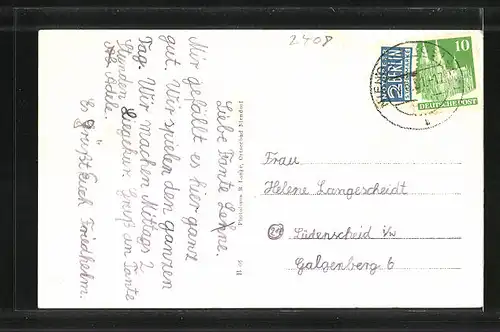 2408
Liebe Tante Lehne.
Mir gefällt es hier ganz
gut. Wir spielen den ganzen
Tag. Wir machen Mittags 2
Stunden Liegekur. Gruß an Tante
Adele.
Es Grüßt Euch Friedhelm.
H 46
Ostseebad Niendorf
NIENDO
2
BERLIN
NOTOPFER
STEUERMARKE
10
DEUTSCHE POST
b
Frau
Helene Langescheidt
Lüdenscheid i/w
Galgenberg 6